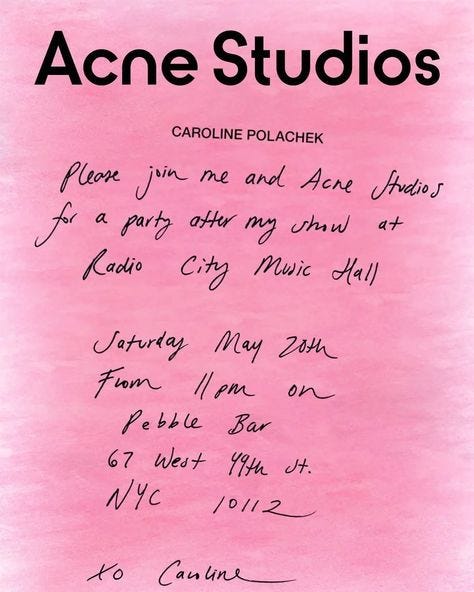 Acne Studios
CAROLINE POLACHEK
Please join me and Acne Studios
for a party after my show at
Radio City Music Hall
Saturday May 20th
From 11pm on
Pebble Bar
67 West 49th st.
NYC 10112
XO Caroline